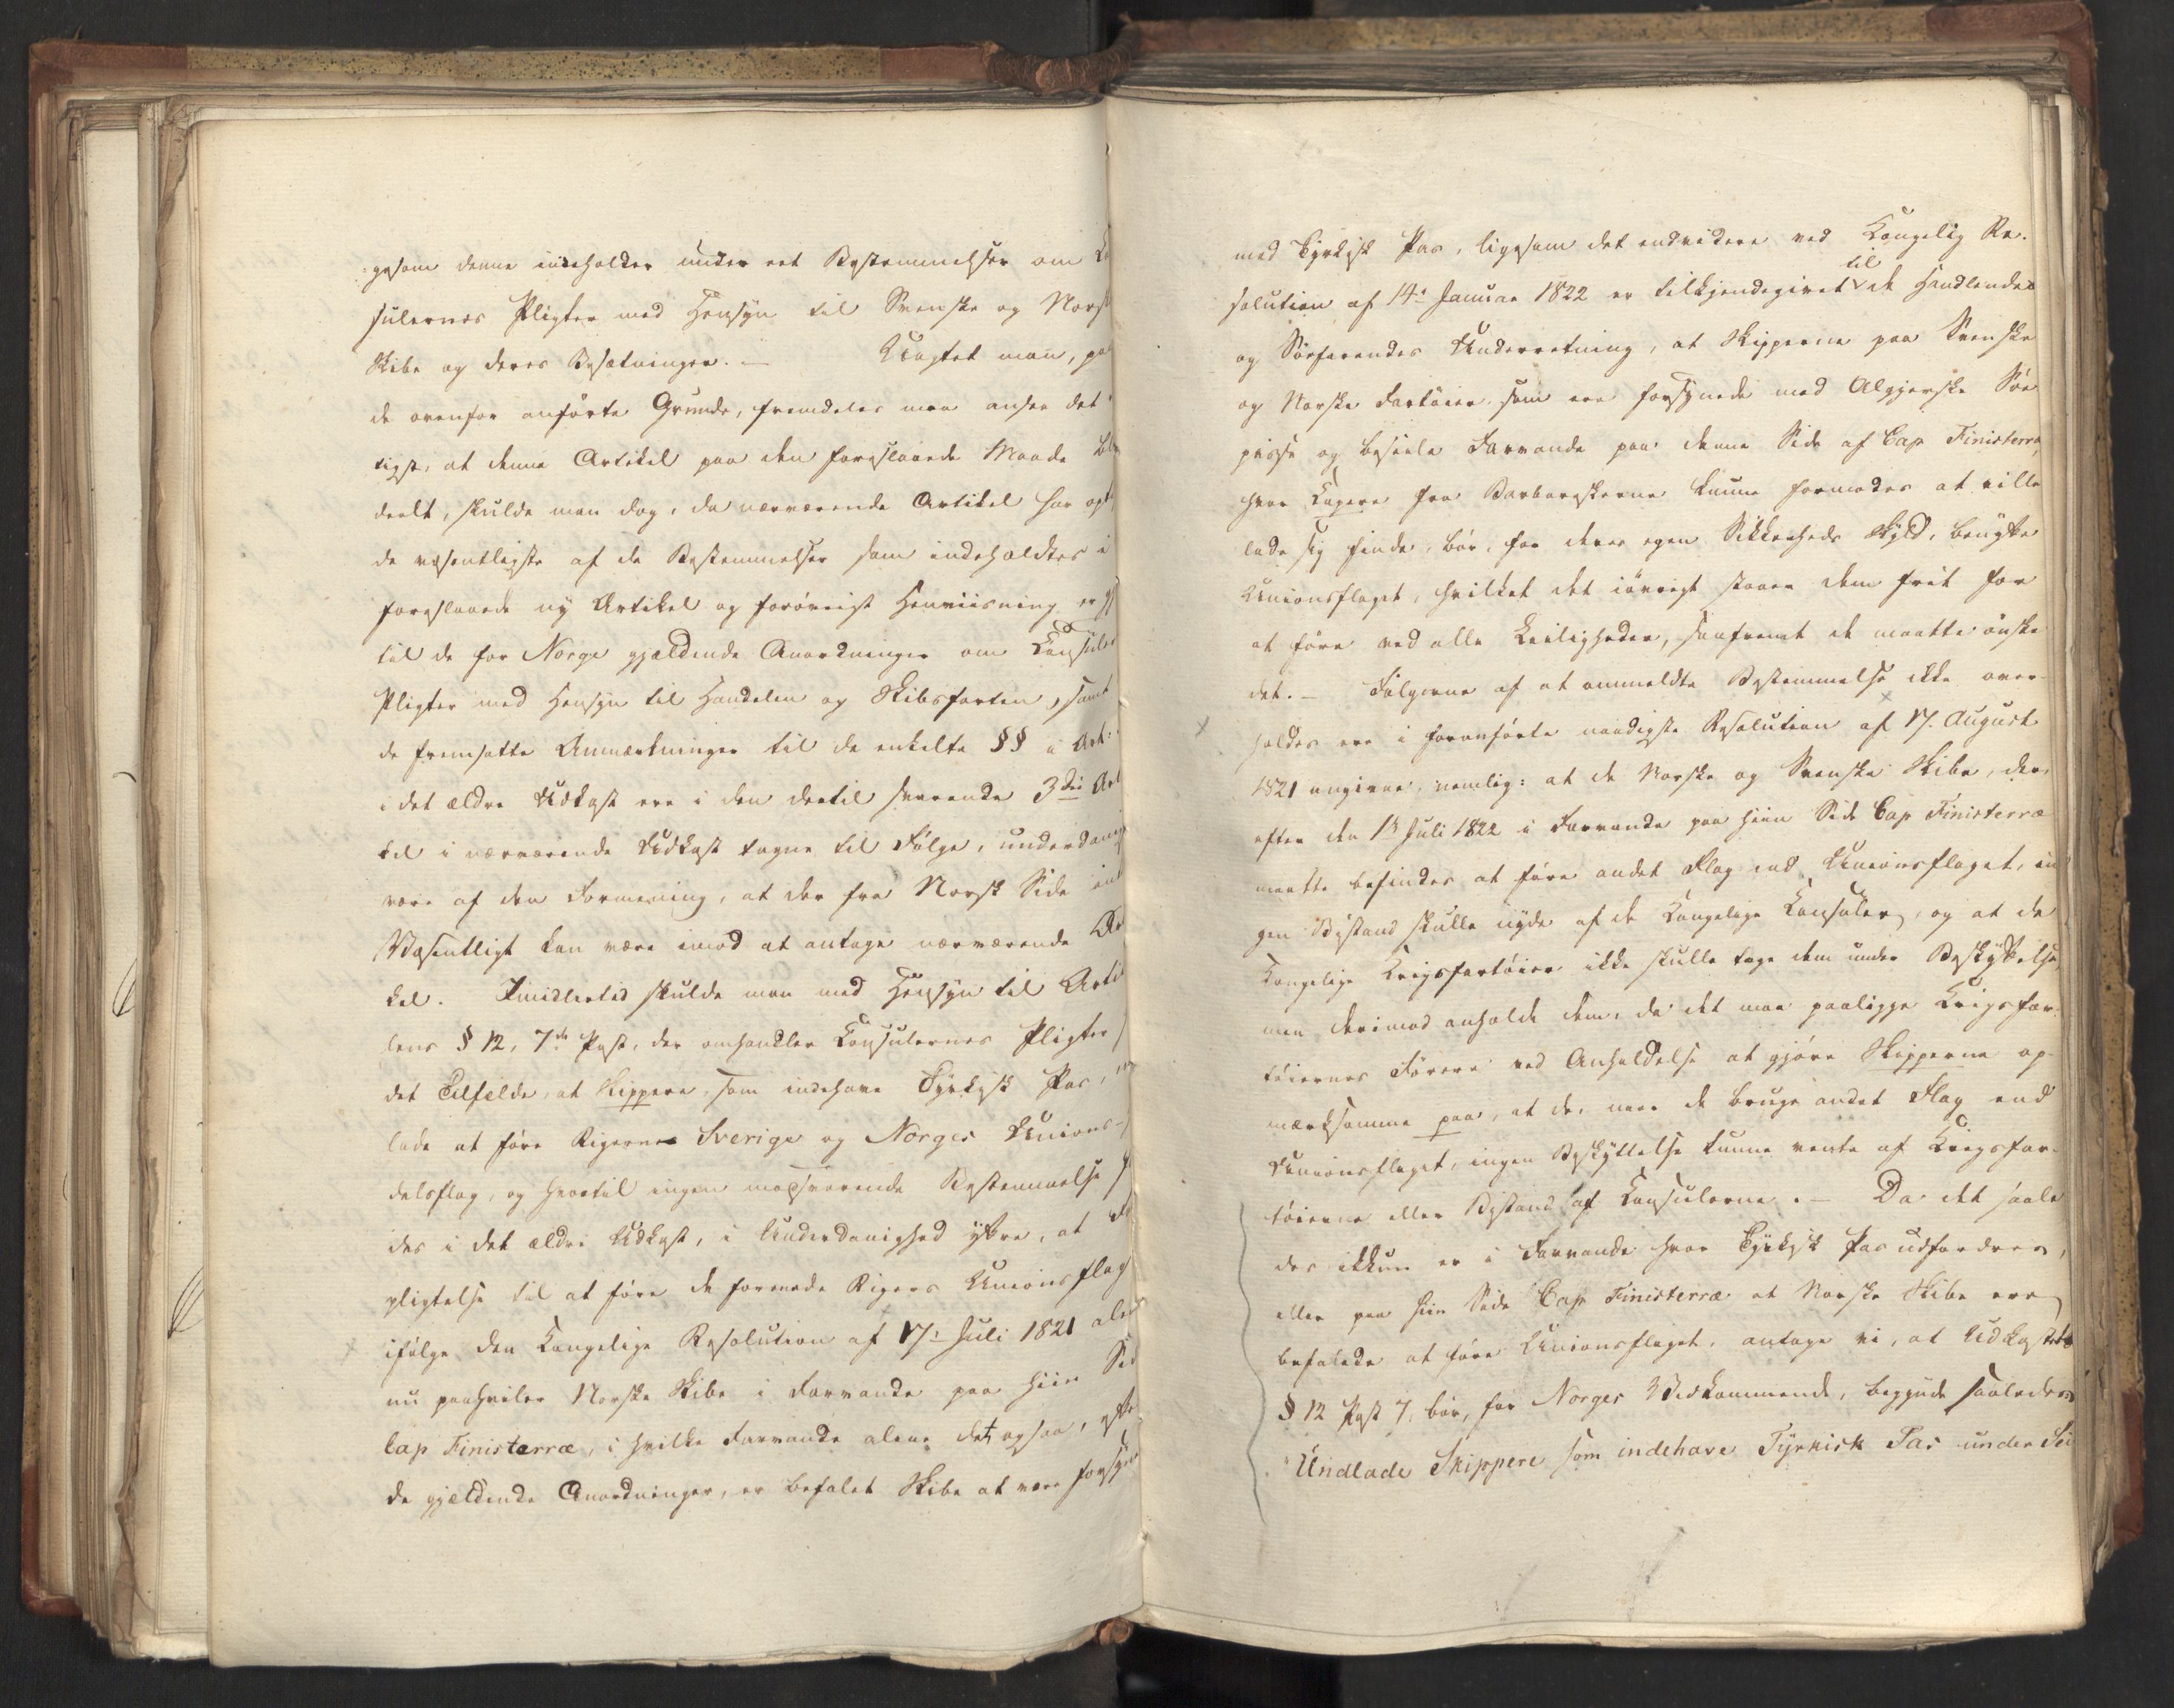 gesom denne indeholder under eet Bestemmelser om
sulernes Pligter med Hensyn til Svenske og Norsk
Skibe og deres Besætninger. — Uagtet man, paa
de ovenfor anførte Grunde, fremdeles maa ansee det
tigst, at denne Artikel paa den foreslaaede Maade
deelt, skulde man dog, da nærværende Artikel har opt
de væsentligste af de Bestemmelser som indeholdtes i
foreslaaede ny Artikel og forøvrigt Henviisning er
til de for Norge gjældende Anordninger om Consuler
Pligter med Hensyn til Handelen og Skibsfarten, samt
de fremsatte Anmærkninger til de enkelte §§ i Art:
i det ældre Udkast ere i den dertil svarende 3die Art
kel i nærværende Udkast tagne til Følge, underdanigst
være af den Formening, at der fra Norsk Side int
Væsentligt kan være imod at antage nærværende Ar
kel. Imidlertid skulde man med Hensyn til Arti
lens § 12, 7de Post, der omhandler Consulernes Pligter
det Tilfælde, at Skippere, som indehave Tyrkisk Pas,
lade at føre Rigernes Sverige og Norges Unions-
delsflag, og hvortil ingen modsvarende Bestemmelse
des i det ældre Udkast, i Underdanighed yttre, at
pligtelse til at føre de forenede Rigers Unionsflag
ifølge den Kongelige Resolution af 17: Juli 1821
nu paahviler Norske Skibe i Farvande paa hiin Sid
Cap Finisterræ, i hvilke Farvande alene det ogsaa, efter
de gjældende Anordninger, er befalet Skibe at være forsyn
med Tyrkisk Pas, ligesom det endvidere ved Kongelig Re-
solution af 14de Januar 1822 er tilkjendegivet til de Handlendes
og Søefarendes Underretning, at Skipperne paa Svenske
og Norske Fartøier, som ere forsynede med Algierske Søe
passe og beseile Farvande paa denne Side af Cap Finisterra,
hvor Capere fra Barbareskerne kunne formodes at ville
lade sig finde, bør, for deres egen Sikkerheds Skyld, benytte
Unionsflaget, hvilket det iøvrigt staaer dem frit for
at føre ved alle Leiligheder, saafremt de maatte ønske
det. — Følgerne af at ommeldte Bestemmelse ikke over-
holdes ere i foranførte naadigste Resolution af 17. August
1821 angivne, nemlig: at de Norske og Svenske Skibe, der
efter den 1ste Juli 1822 i Farvande paa hiin Side Cap Finisterræ
maatte befindes at føre andet Flag end Unionsflaget, in
gen Bistand skulle nyde af de Kongelige Consuler, og at de
Kongelige Krigsfartøier ikke skulle tage dem under Beskyttelse,
men derimod anholde dem, da det maa paaligge Krigsfar-
tøiernes Førere ved Anholdelse at gjøre Skipperne op-
mærksomme paa, at de, naar de bruge andet Flag end
Unionsflaget, ingen Beskyttelse kunne vente af Krigsfar-
tøierne eller Bistand af Consulerne. — Da det saale
des ikkun er i Farvande hvor Tyrkisk Pas udfordres,
eller paa hiin Side Cap Finisterræ at Norske Skibe ere
befalede at føre Unionsflaget, antage vi, at Udkastets
§ 12 Post 7, bør, for Norges Vedkommende, begynde saaledes:
"Undlade Skippere som indehave Tyrkisk Pas under Sei